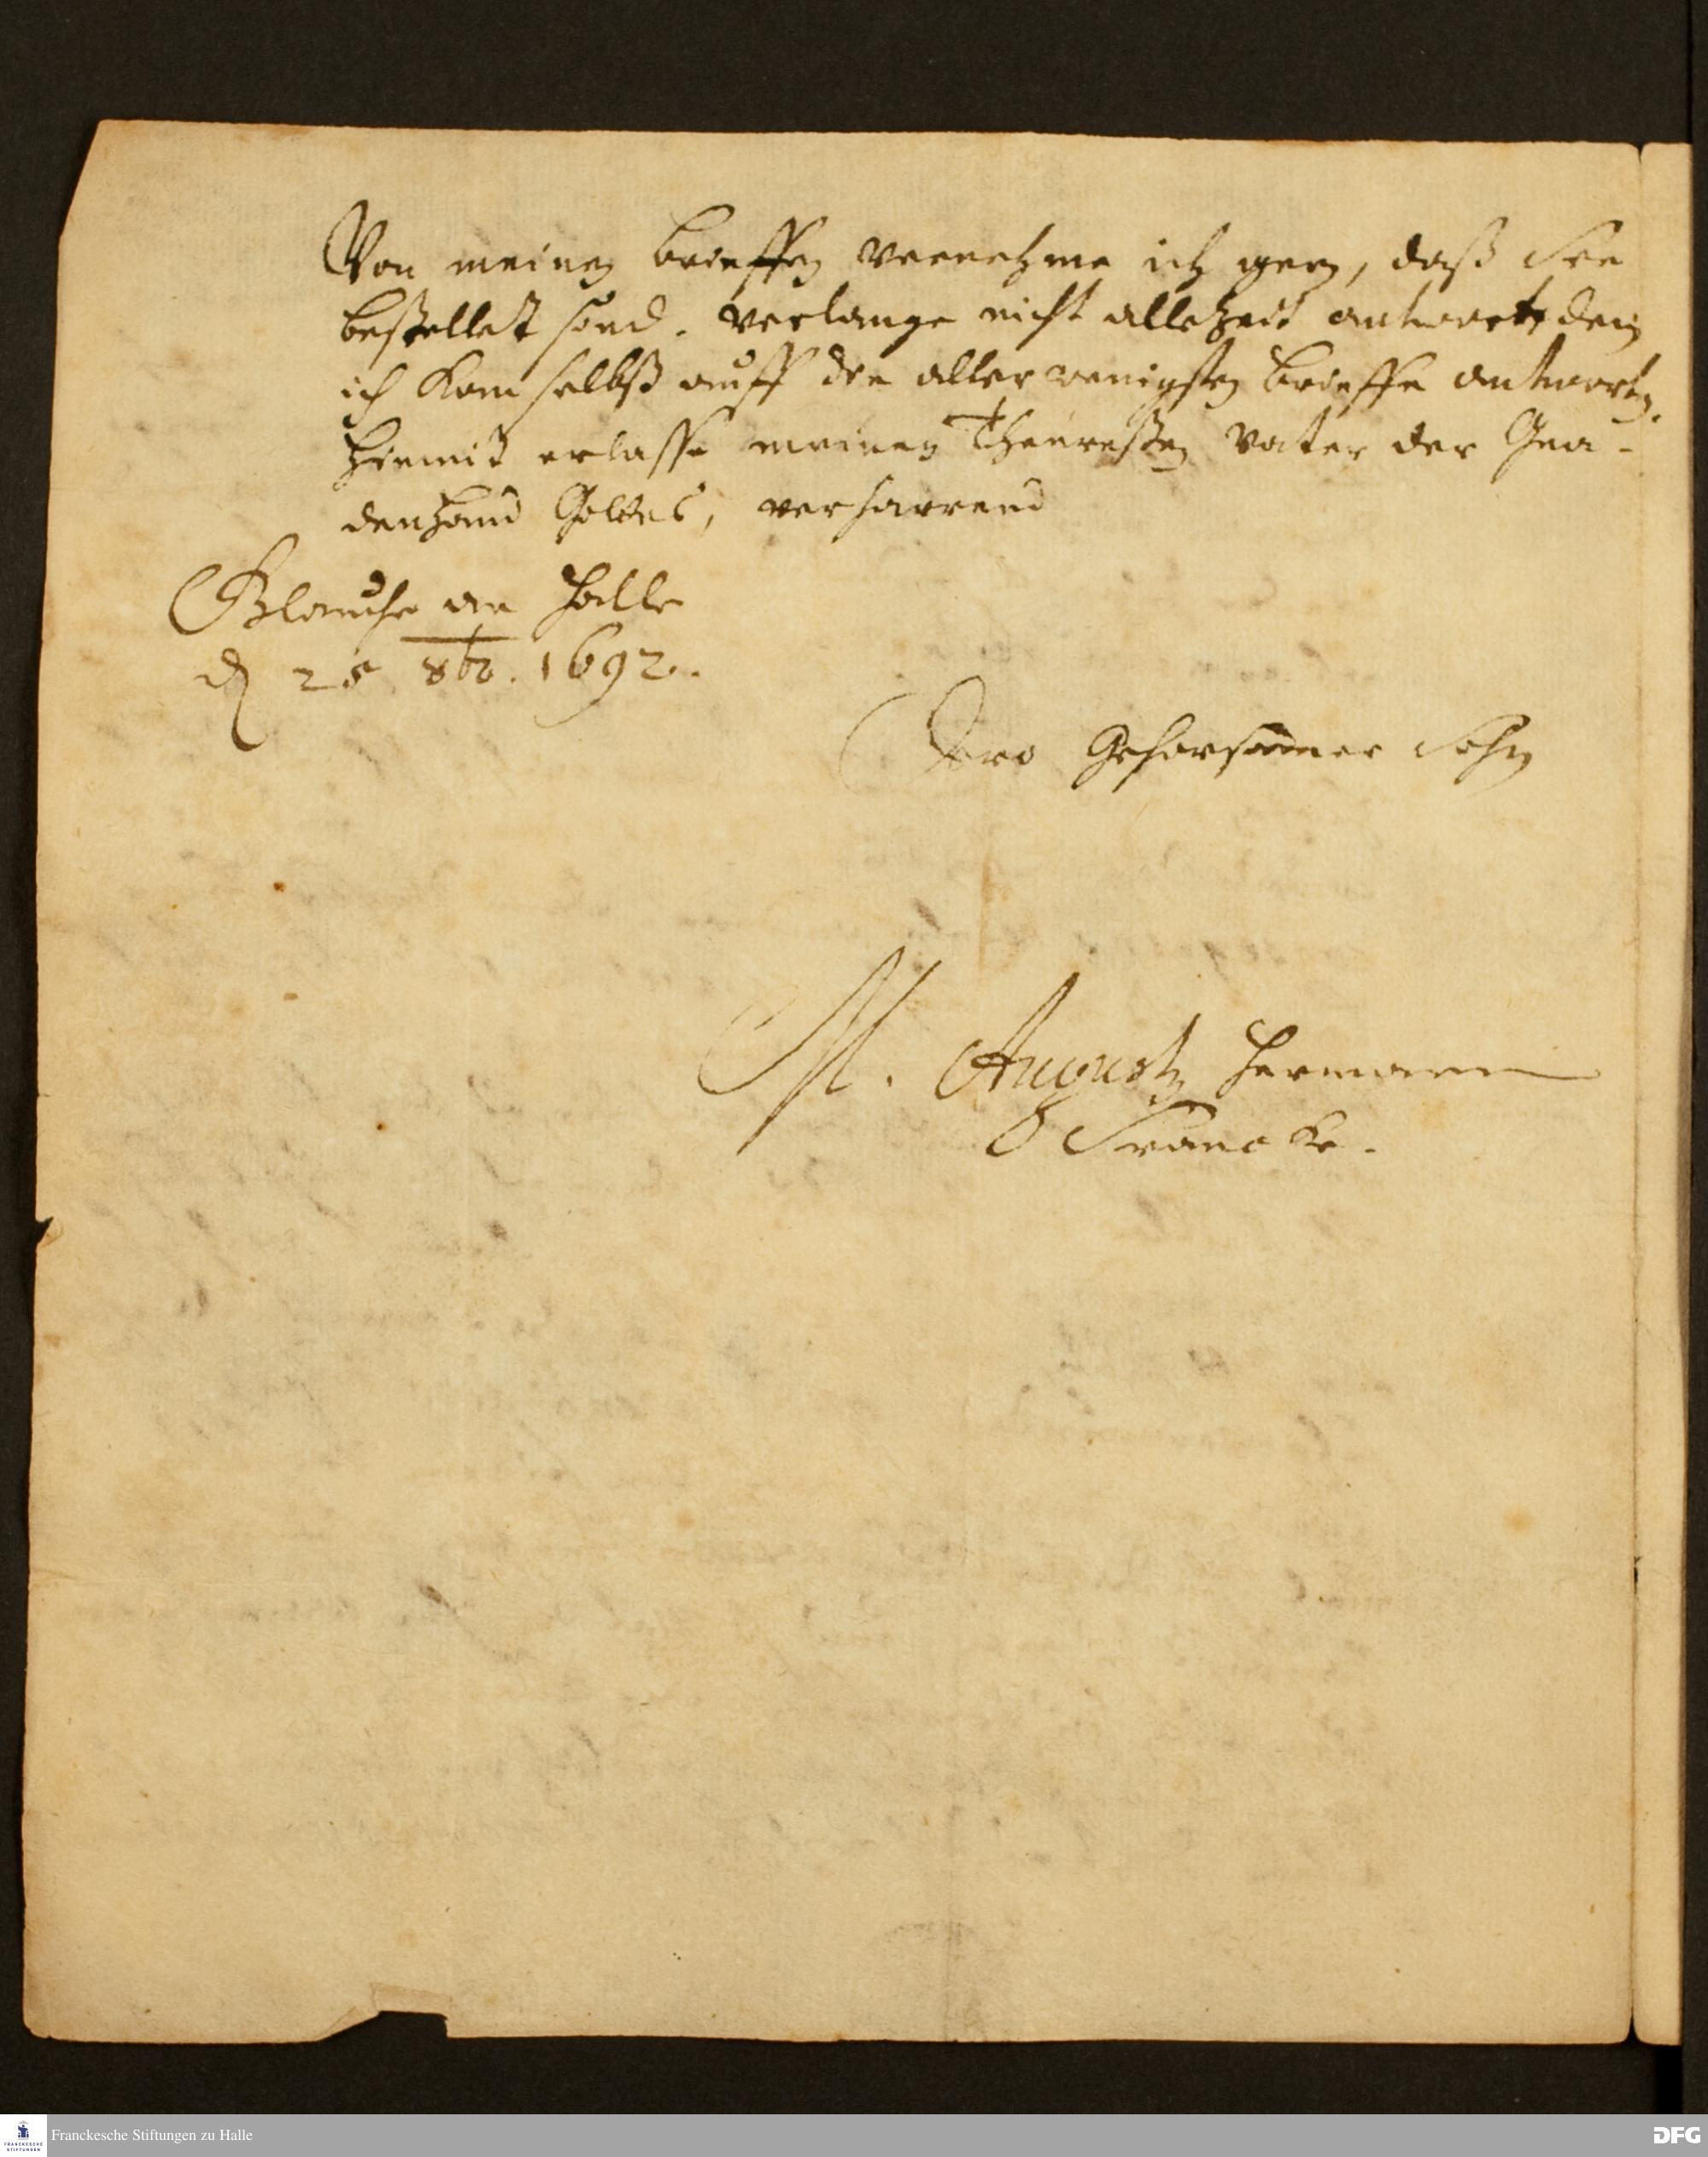 Von meinen brieffen vernehme ich gern, daß sie
bestellet sind. verlange nicht allezeit antwort, den
ich kan selbst auff die aller wenigsten brieffe antworten.
Hiemit erlasse meinen Theuresten Vater der Gna-
denhand Gottes, verharrend
Glaucha an Halle
d. 25 8br. 1692.
Dero Gehorsamer Sohn
M. August Hermann
Francke.
Franckesche Stiftungen zu Halle
FRANCKESCHE
STIFTUNGEN
DFG